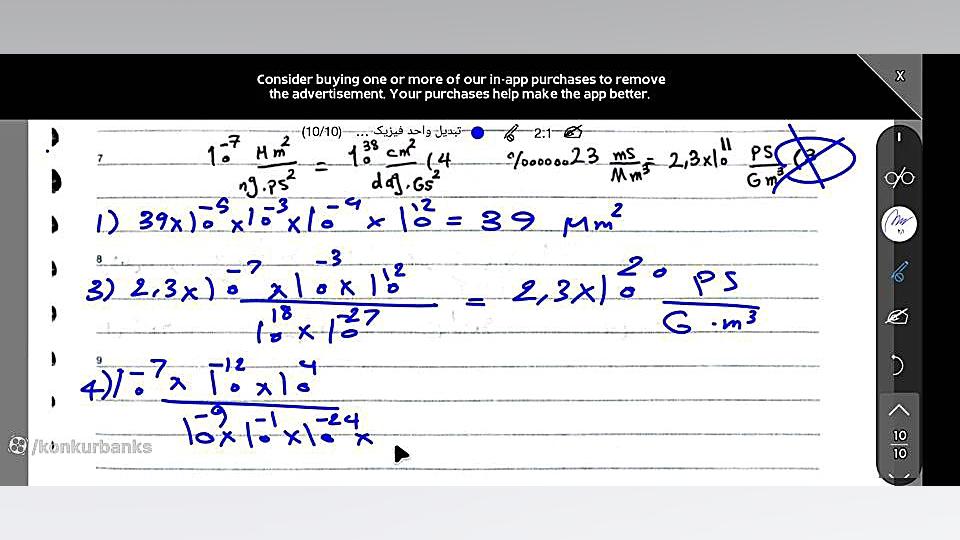 Consider buying one or more of our in-app purchases to remove
the advertisement. Your purchases help make the app better.
X
(10/10) ... تبدیل واحد فیزیک
2:1
10^-7 Hm^2/ng.ps^2 = 10^38 cm^2/dag.Gs^2 (4
%000000 23 ms/Mm^3 = 2,3×10^11 Ps/Gm^3 (3
7
1) 39×10^-5×10^-3×10^-4×10^12 = 39 μm^2
8
3) 2,3×10^-7×10^-3×10^12/10^18×10^-27 = 2,3×10^20 PS/G.m^3
9
4) 10^-7×10^-12×10^4/10^-9×10^-1×10^-24×
10
10
/konkurbanks